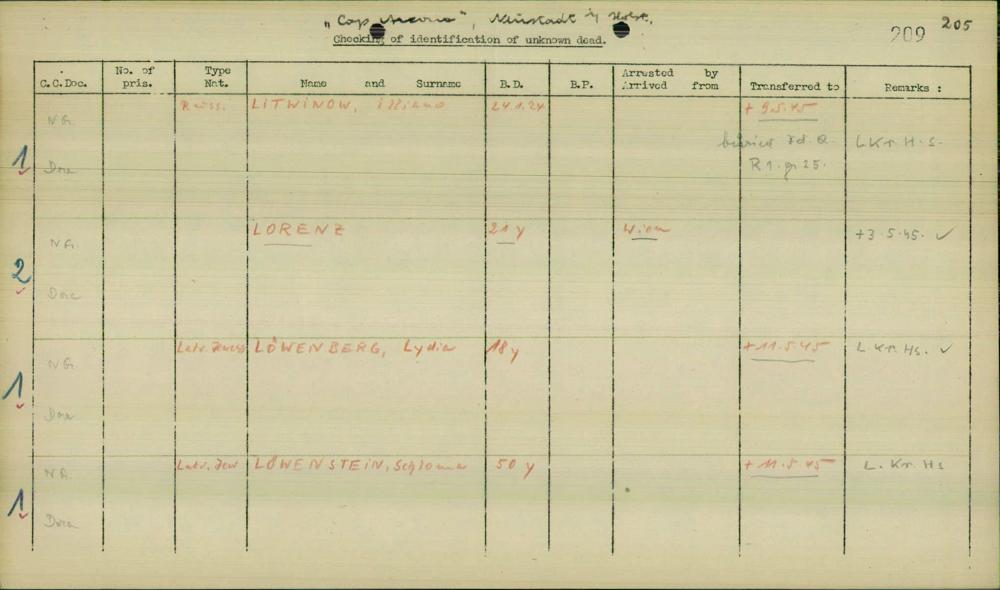 "Cap Arcona", Neustadt i/ Holst.
209 205
Checking of identification of unknown dead.
C.C.Doc. No. of pris. Type Nat. Name and Surname B.D. B.P. Arrested by Arrived from Transferred to Remarks :
NG. Russ. LITWINOW, 24.1.24 + 9.5.45
1 Dora buried R 1. gr 25. L Kr. H. S.
NG. LORENZ 21 y Wien +3.5.45. ✓
2 Dora
NG Latv. Jewess LÖWENBERG, Lydia 18 y + 11.5.45 L Kr. Hs. ✓
1 Dora
NG. Latv. Jew LÖWENSTEIN, Schloma 50 y + 11.5.45 L. Kr. Hs
1 Dora